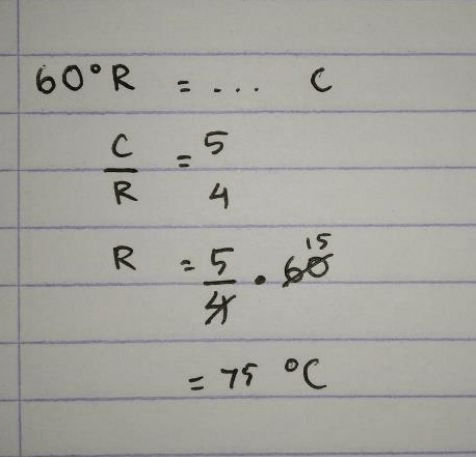 60°R = ... C
C = 5
R 4
R = 5/4 · 60 15
= 75 °C